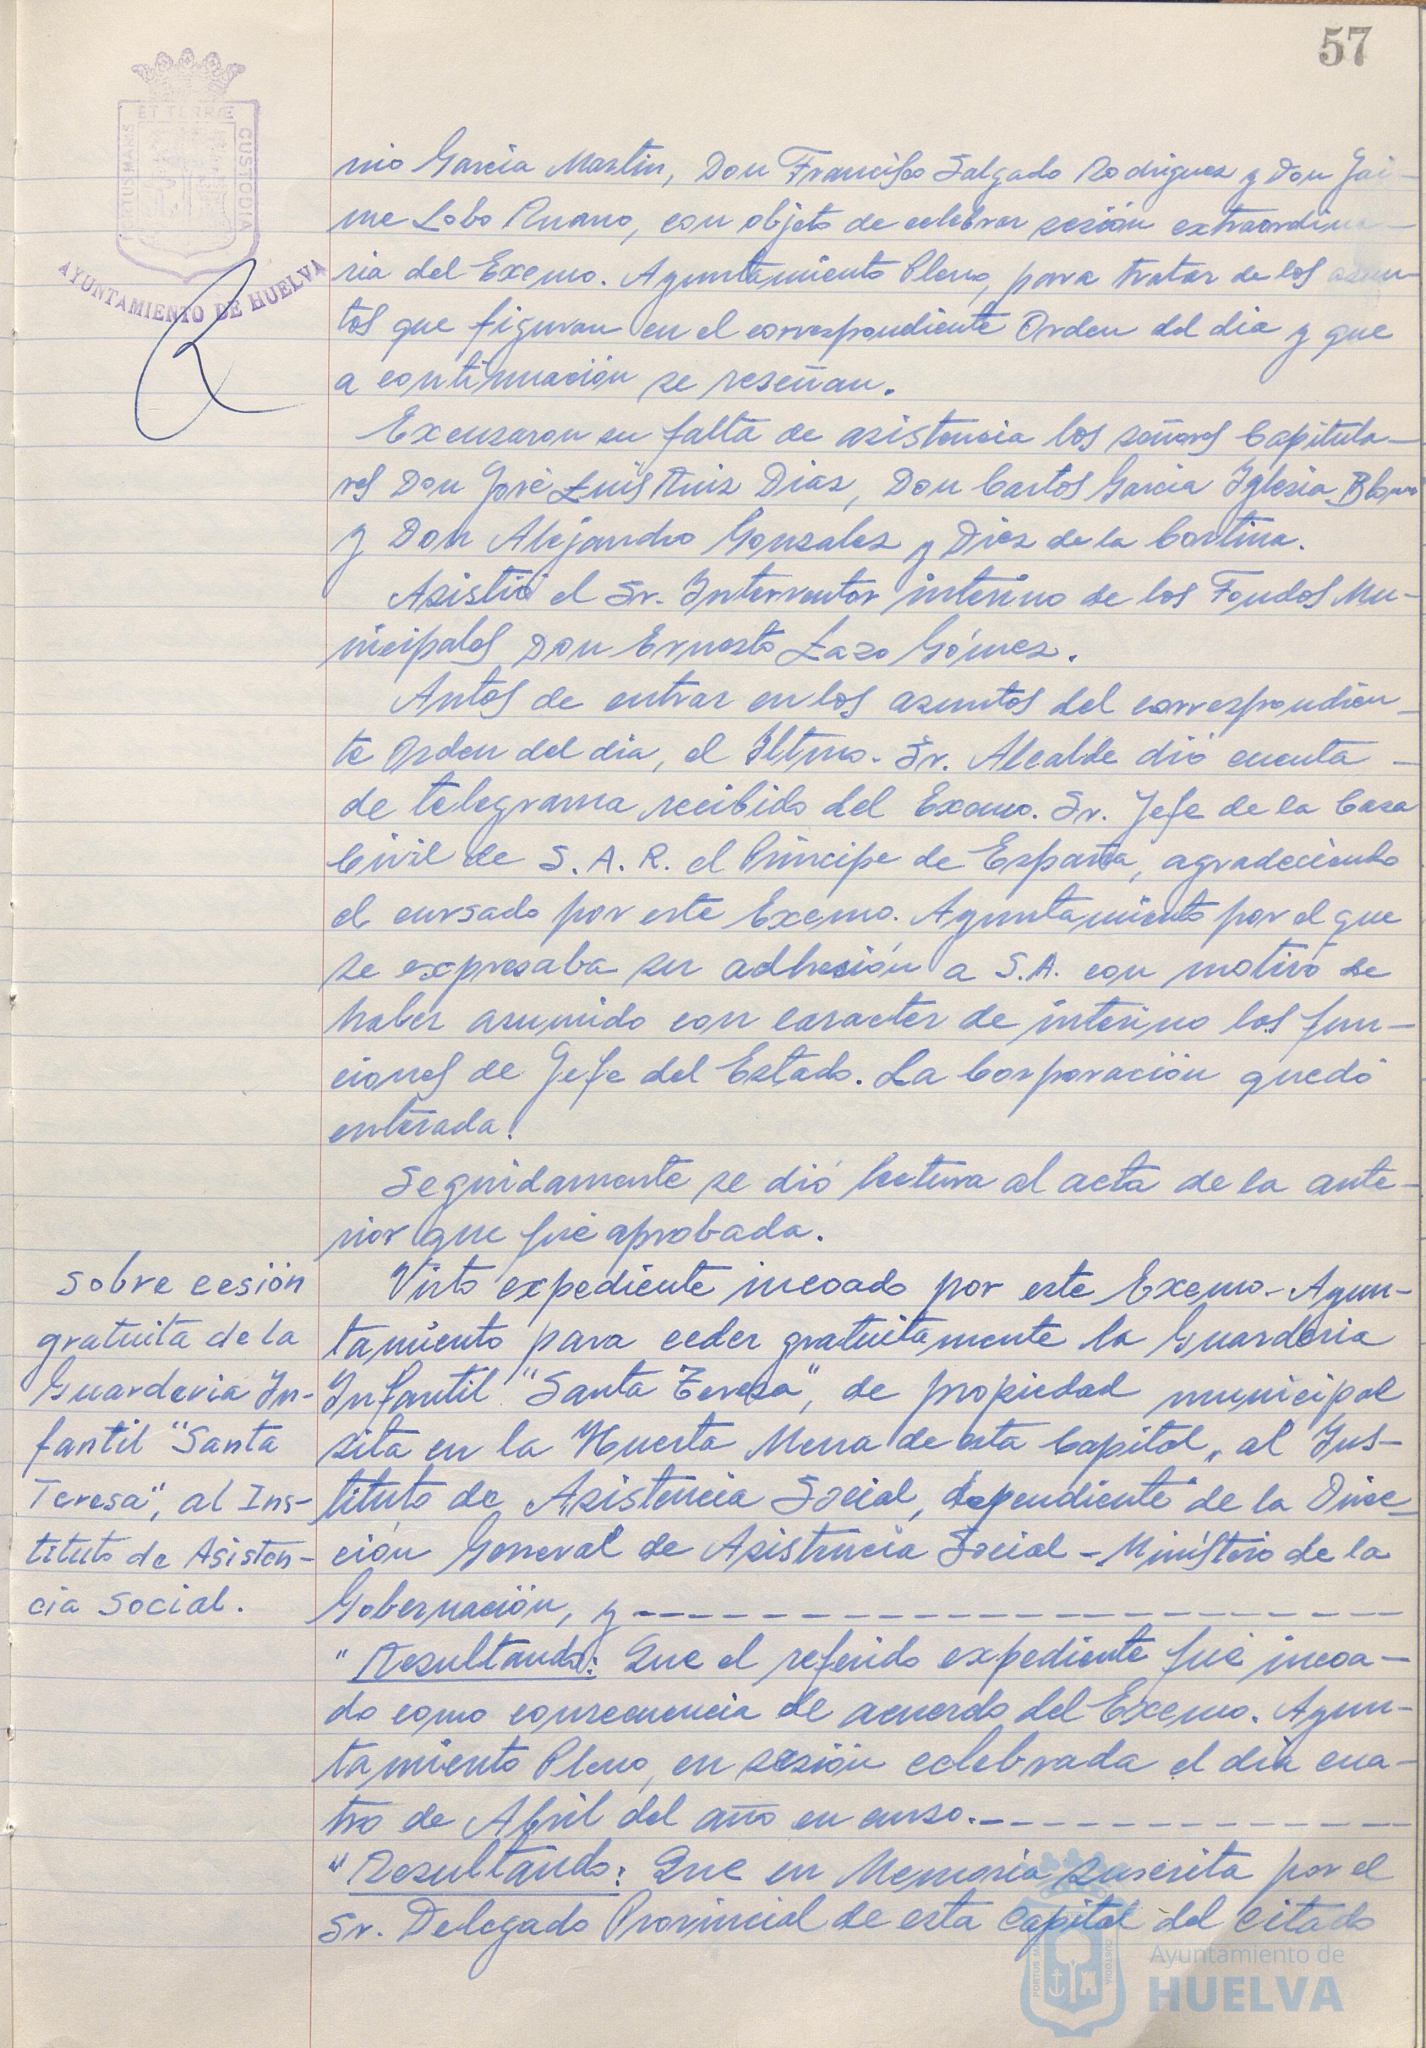 57
ET TERRÆ
PORTUS MARIS
CUSTODIA
AYUNTAMIENTO DE HUELVA
nio García Martin, Don Francisco Salgado Rodriguez y Don Jai-
me Lobo Ruano, con objeto de celebrar sesión extraordina-
ria del Excmo. Ayuntamiento Pleno, para tratar de los asun-
tos que figuran en el correspondiente Orden del dia y que
a continuación se reseñan.
Excusaron su falta de asistencia los señores Capitula-
res Don José Luis Ruiz Diaz, Don Carlos Garcia Iglesia Blanco
y Don Alejandro Gonzalez y Diez de la Cortina.
Asistió el Sr. Interventor interino de los Fondos Mu-
nicipales Don Ernesto Lazo Gómez.
Antes de entrar en los asuntos del correspondien-
te Orden del dia, el Iltmo. Sr. Alcalde dió cuenta -
de telegrama recibido del Excmo. Sr. Jefe de la Casa
Civil de S. A. R. el Principe de España, agradeciendo
el cursado por este Excmo. Ayuntamiento por el que
se expresaba su adhesión a S.A. con motivo de
haber asumido con caracter de interino las fun-
ciones de Jefe del Estado. La Corporación quedó
enterada.
Seguidamente se dió lectura al acta de la ante-
rior que fué aprobada.
Sobre cesión
gratuita de la
Guarderia In-
fantil "Santa
Teresa", al Ins-
tituto de Asisten-
cia Social.
Visto expediente incoado por este Excmo. Ayun-
tamiento para ceder gratuitamente la Guarderia
Infantil "Santa Teresa", de propiedad municipal
sita en la Huerta Mena de esta Capital, al Ins-
tituto de Asistencia Social, dependiente de la Direc-
ción General de Asistencia Social - Ministerio de la
Gobernación, y - - - - - - - - - - - - - -
"Resultando: Que el referido expediente fué incoa-
do como consecuencia de acuerdo del Excmo. Ayun-
tamiento Pleno, en sesión celebrada el dia cua-
tro de Abril del año en curso. - - - - - - - - - -
"Resultando: Que en Memoria suscrita por el
Sr. Delegado Provincial de esta Capital del citado
Ayuntamiento de
HUELVA